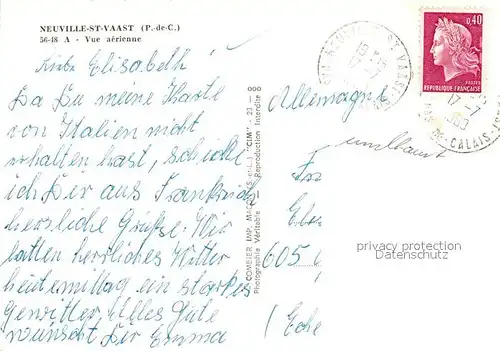 NEUVILLE-ST-VAAST (P.-de-C.)
56-48 A - Vue aérienne
Liebe Elisabeth!
Da Du meine Karte
von Italien nicht
erhalten hast, schicke
ich Dir aus Frankreich
herzliche Grüße. Wir
hatten herrliches Wetter
heute mittag ein starkes
Gewitter. Alles Gute
wünscht Dir Emma
COMBIER IMP. MACON (S.-et-L.) "CIM"
Photographie Véritable - Reproduction Interdite
Allemagne
unbekannt
605
0,40
POSTES
REPUBLIQUE FRANÇAISE
NEUVILLE ST VAAST
17-7
PAS DE CALAIS
privacy protection
Datenschutz